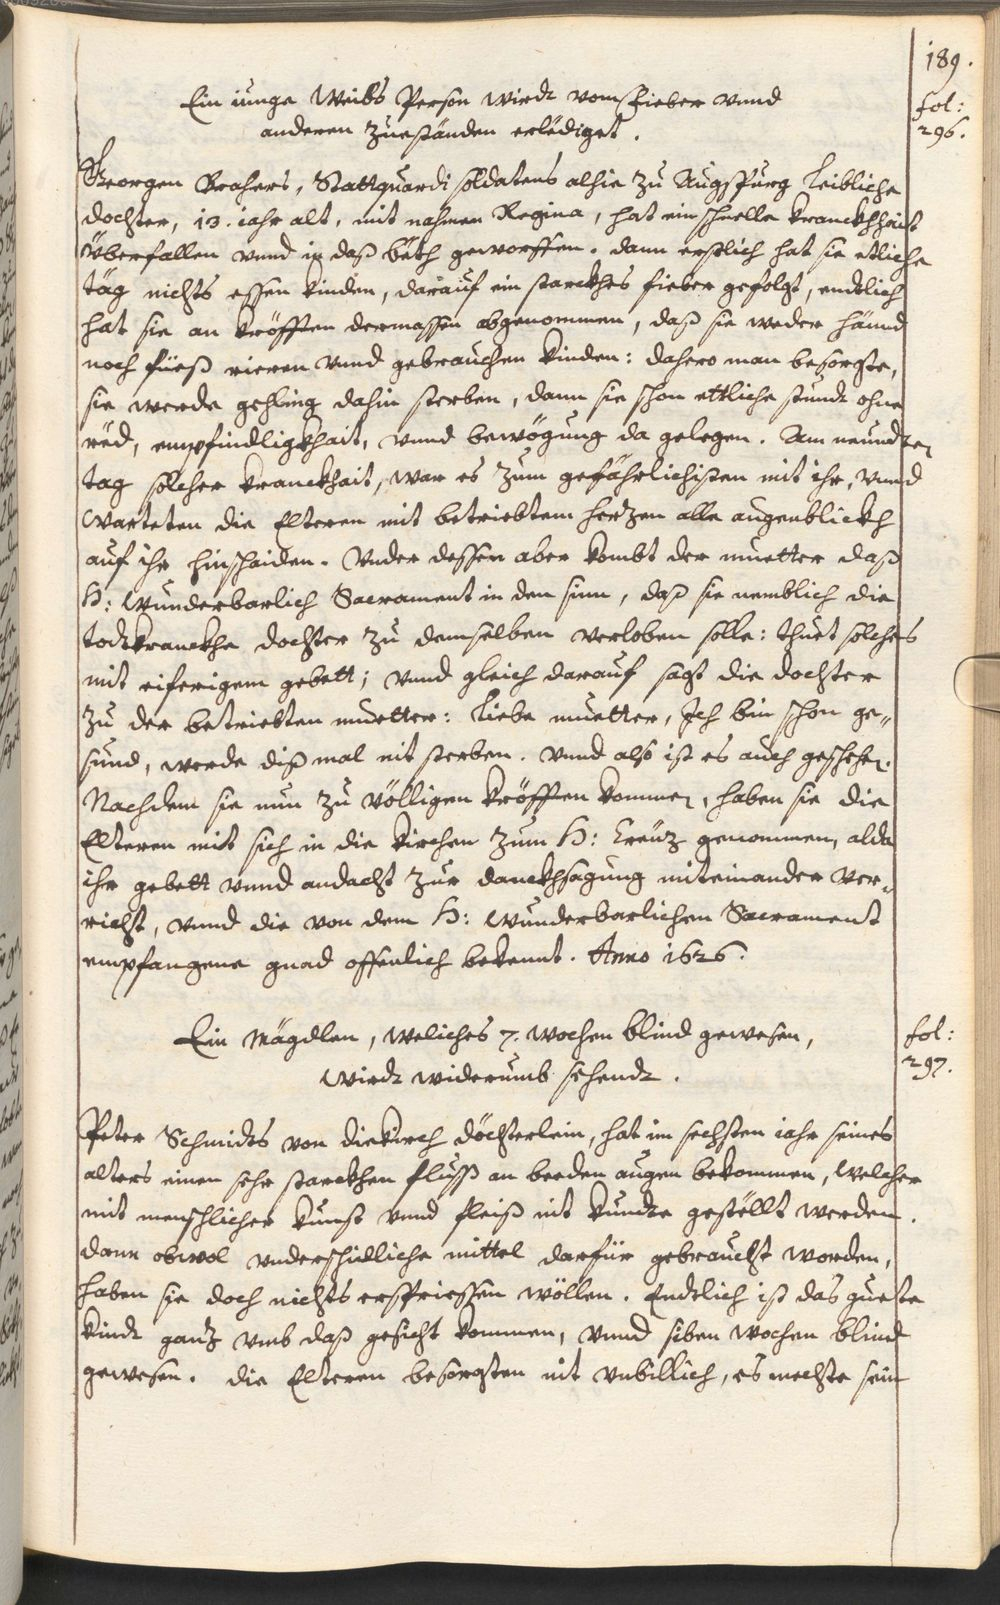 189.
Ein iunge Weibs Person wirdt vom Fieber vnnd
fol:
anderen Zueständen erlediget.
296.
Georgen Brahers, Stattquardi soldatens alhie zu Augspurg leibliche
dochter, 13. iahr alt, mit nahmen Regina, hat ein schnelle kranckhheit
überfallen vnnd in daß beth geworffen. dann erstlich hat sie etliche
täg nichts essen kinden, darauf ein starckhes fieber gefolgt, endtlich
hat sie an kröfften dermassen abgenommen, daß sie weder händ
noch füeß rieren vnnd gebrauchen kinden: dahero man besorgte,
sie werde gehling dahin sterben, dann sie schon ettliche stundt ohne
red, empfindligkhait, vnnd bewögung da gelegen. Am neundten
tag solcher kranckhait, war es zum gefährlichisten mit ihr, vnnd
warteten die Elteren mit betriebtem hertzen alle augenblickh
auf ihr hinschaiden. Vnder dessen aber kombt der muetter daß
H: Wunderbarlich Sacrament in den sinn, daß sie nemblich die
todtkranckhe dochter zu demselben verloben solle: thuet solches
mit eiferigem gebett; vnnd gleich darauf sagt die dochter
zu der betriebten muetter: liebe muetter, Ich bin schon ge„
sund, werde diß mal nit sterben. vnnd also ist es auch geschehen.
Nachdem sie nun zu völligen kröfften kommen, haben sie die
Elteren mit sich in die kirchen zum H: Creüz genommen, alda
ihr gebett vnnd andacht zur danckhsagung miteinander ver„
richt, vnnd die von dem H: wunderbarlichen Sacrament
empfangene gnad offenlich bekennt. Anno 1626.
Ein Mägdlen, weliches 7. wochen blind gewesen,
fol:
wirdt widerumb sehendt.
297.
Peter Schmidts von diekirch döchterlein, hat im sechsten iahr seines
alters einen sehr starckhen fluss an beeden augen bekommen, welcher
mit menschlicher kunst vnnd fleiß nit kundte gestöllt werden.
dann obwol vnderschidliche mittel darfür gebraucht worden,
haben sie doch nichts ersprießen wöllen. Endtlich ist das guete
kindt ganz vmb daß gesicht kommen, vnnd siben wochen blind
gewesen. die Elteren besorgten nit vnbillich, es mechte sein